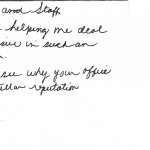 and Staff
helping me deal
in such an
see why your office
reputation